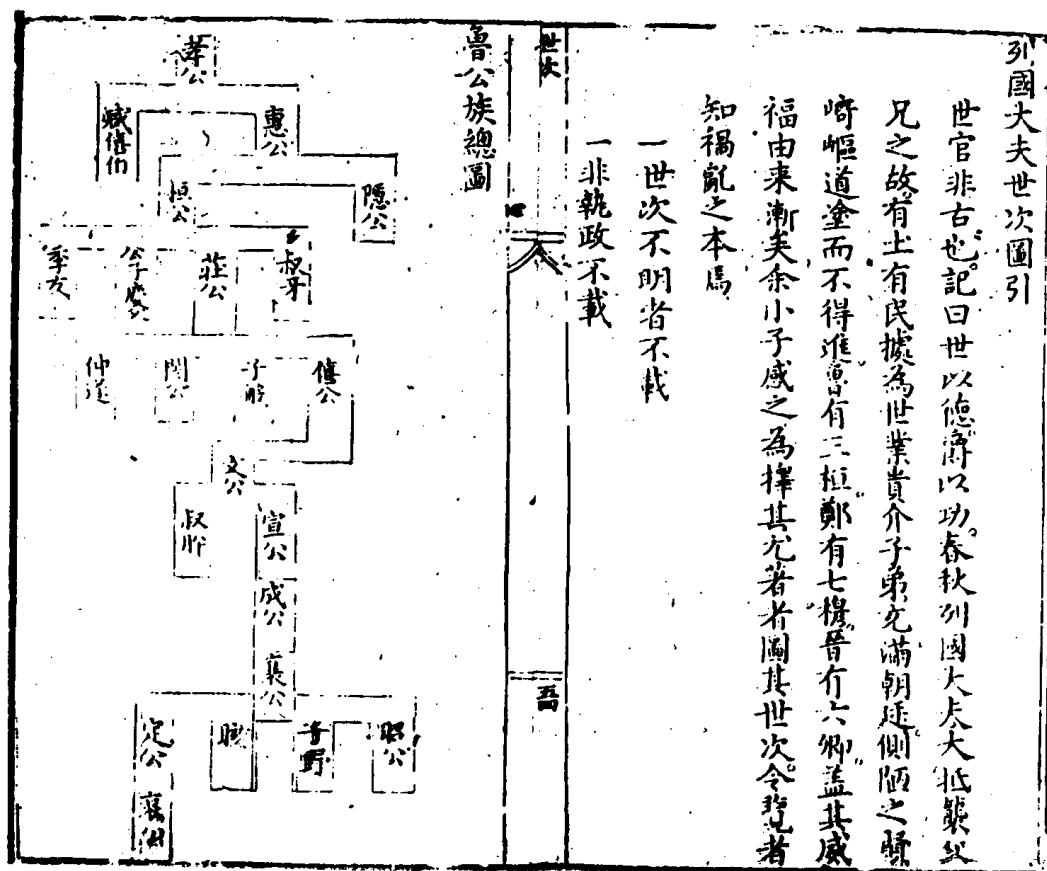 列國大夫世次圖引
世官非古也記曰世以德爵以功春秋列國大夫大抵襲父
兄之故有土有民據為世業貴介子弟充滿朝廷側陋之賢
崎嶇道塗而不得進魯有三桓鄭有七穆晉有六卿盖其威
福由来漸矣余小子感之為擇其尤著者圖其世次令覽者
知禍亂之本焉
一世次不明者不載
一非執政不載
世次
魯公族總圖
孝公
惠公
臧僖伯
隱公
桓公
叔牙
莊公
公子慶父
季友
僖公
子般
閔公
仲遂
文公
宣公
叔肸
成公
襄公
昭公
子野
定公